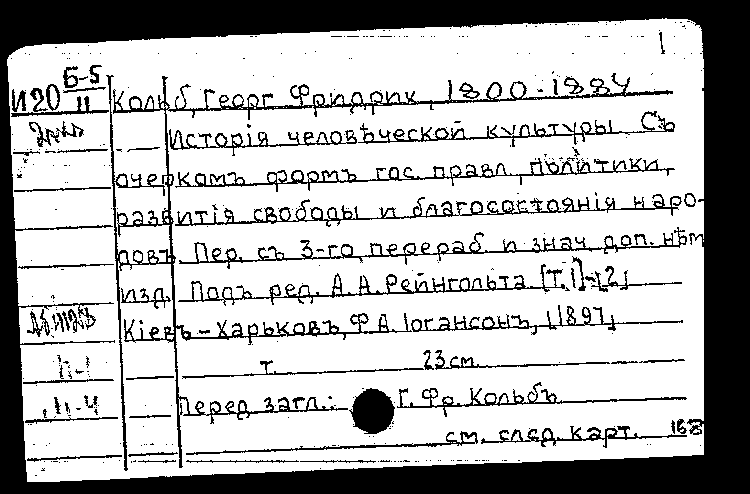 1
И20 Б-5
II
Кольб, Георг Фридрик, 1800-1884
Исторія человѣческой культуры. Съ
очеркомъ формъ гос. правл., политики,
развитія свободы и благосостоянія наро-
довъ. Пер. съ 3-го, перераб. и знач. доп. нѣм.
изд. Подъ ред. А. А. Рейнгольта. [Т. 1]-[2]
Кіевъ-Харьковъ, Ф. А. Іогансонъ, [1897]
т. 23 см.
II-4
Перед загл.: Г. Фр. Кольбъ
см. след. карт. 168